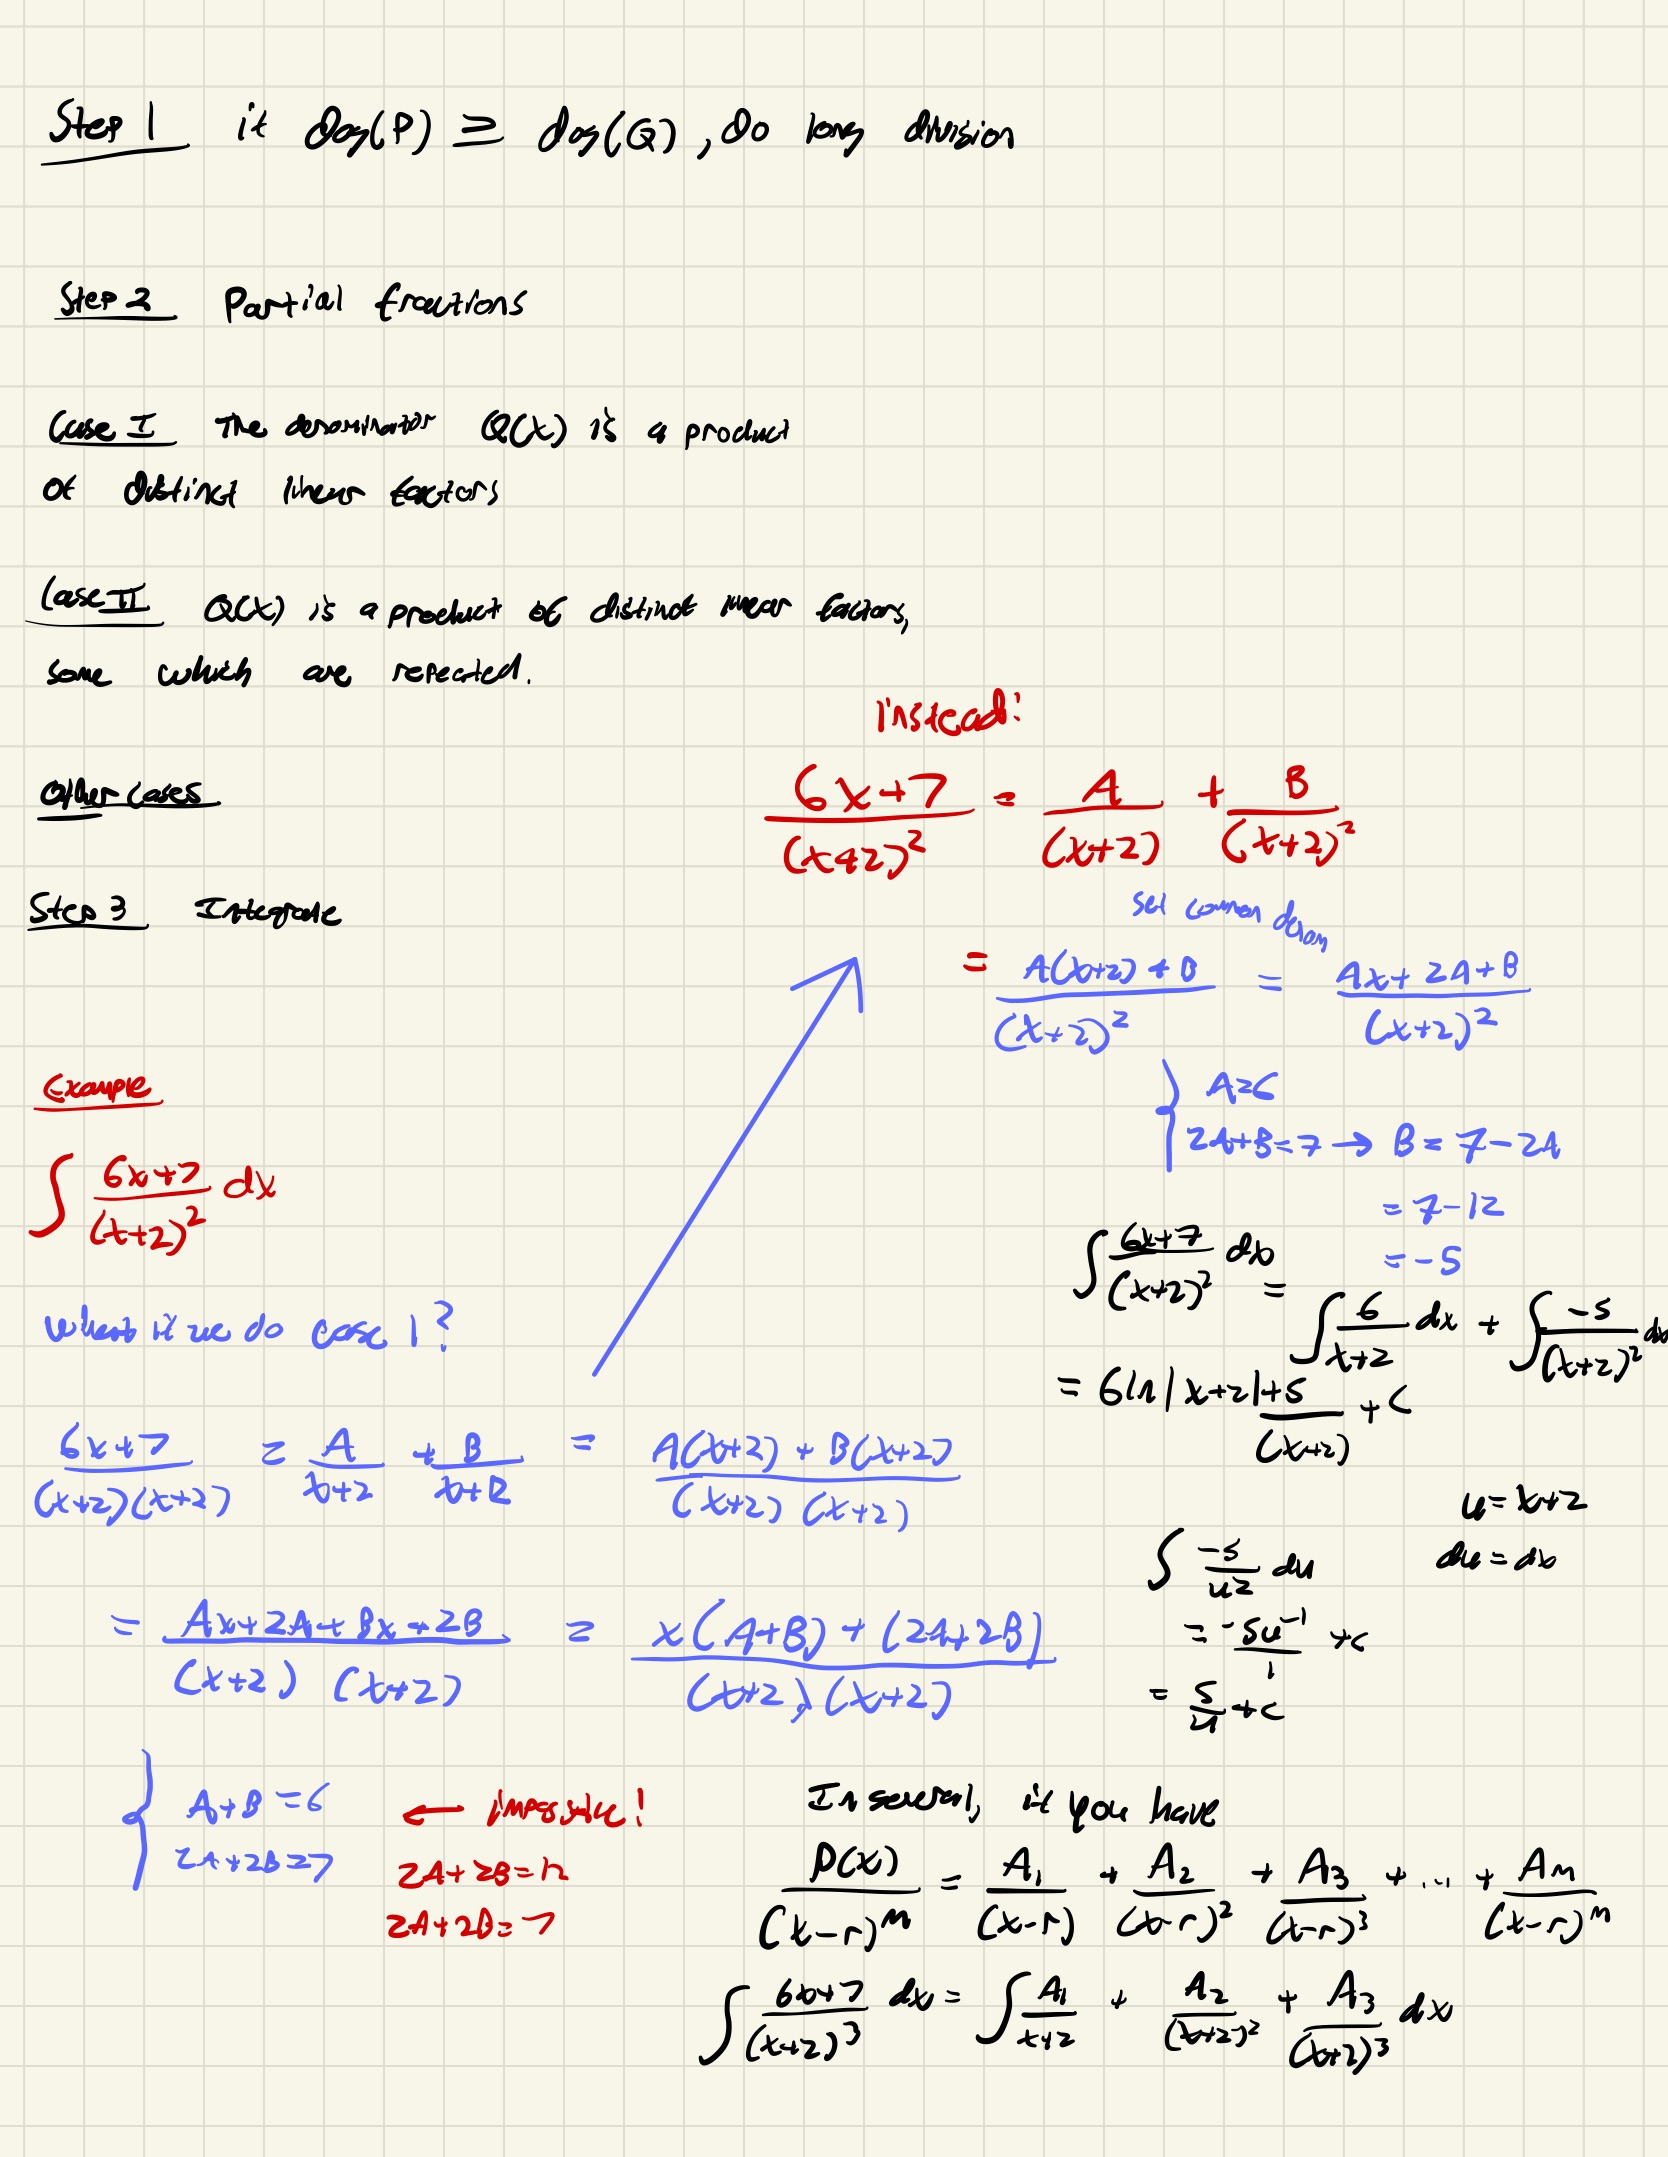 Step 1 if deg(P) ≥ deg(Q), do long division
Step 2 Partial fractions
Case I The denominator Q(x) is a product
of distinct linear factors
Case II Q(x) is a product of distinct linear factors,
some which are repeated.
Other cases
Step 3 Integrate
Example
∫ (6x+7)/(x+2)² dx
What if we do case 1?
(6x+7)/((x+2)(x+2)) = A/(x+2) + B/(x+2) = (A(x+2) + B(x+2))/((x+2)(x+2))
= (Ax+2A+Bx+2B)/((x+2)(x+2)) = (x(A+B) + (2A+2B))/((x+2)(x+2))
{ A+B = 6
2A+2B = 7
← impossible!
2A+2B = 12
2A+2B = 7
instead:
(6x+7)/(x+2)² = A/(x+2) + B/(x+2)²
set common denom
= (A(x+2) + B)/(x+2)² = (Ax + 2A + B)/(x+2)²
{ A=6
2A+B=7 → B = 7-2A
= 7-12
= -5
∫ (6x+7)/(x+2)² dx =
∫ 6/(x+2) dx + ∫ -5/(x+2)² dx
= 6ln|x+2| + 5/(x+2) + C
u = x+2
du = dx
∫ -5/u² du
= -5u⁻¹/1 + c
= 5/u + c
In general, if you have
P(x)/(x-r)ᵐ = A₁/(x-r) + A₂/(x-r)² + A₃/(x-r)³ + ... + Am/(x-r)ᵐ
∫ (6x+7)/(x+2)³ dx = ∫ A₁/(x+2) + A₂/(x+2)² + A₃/(x+2)³ dx